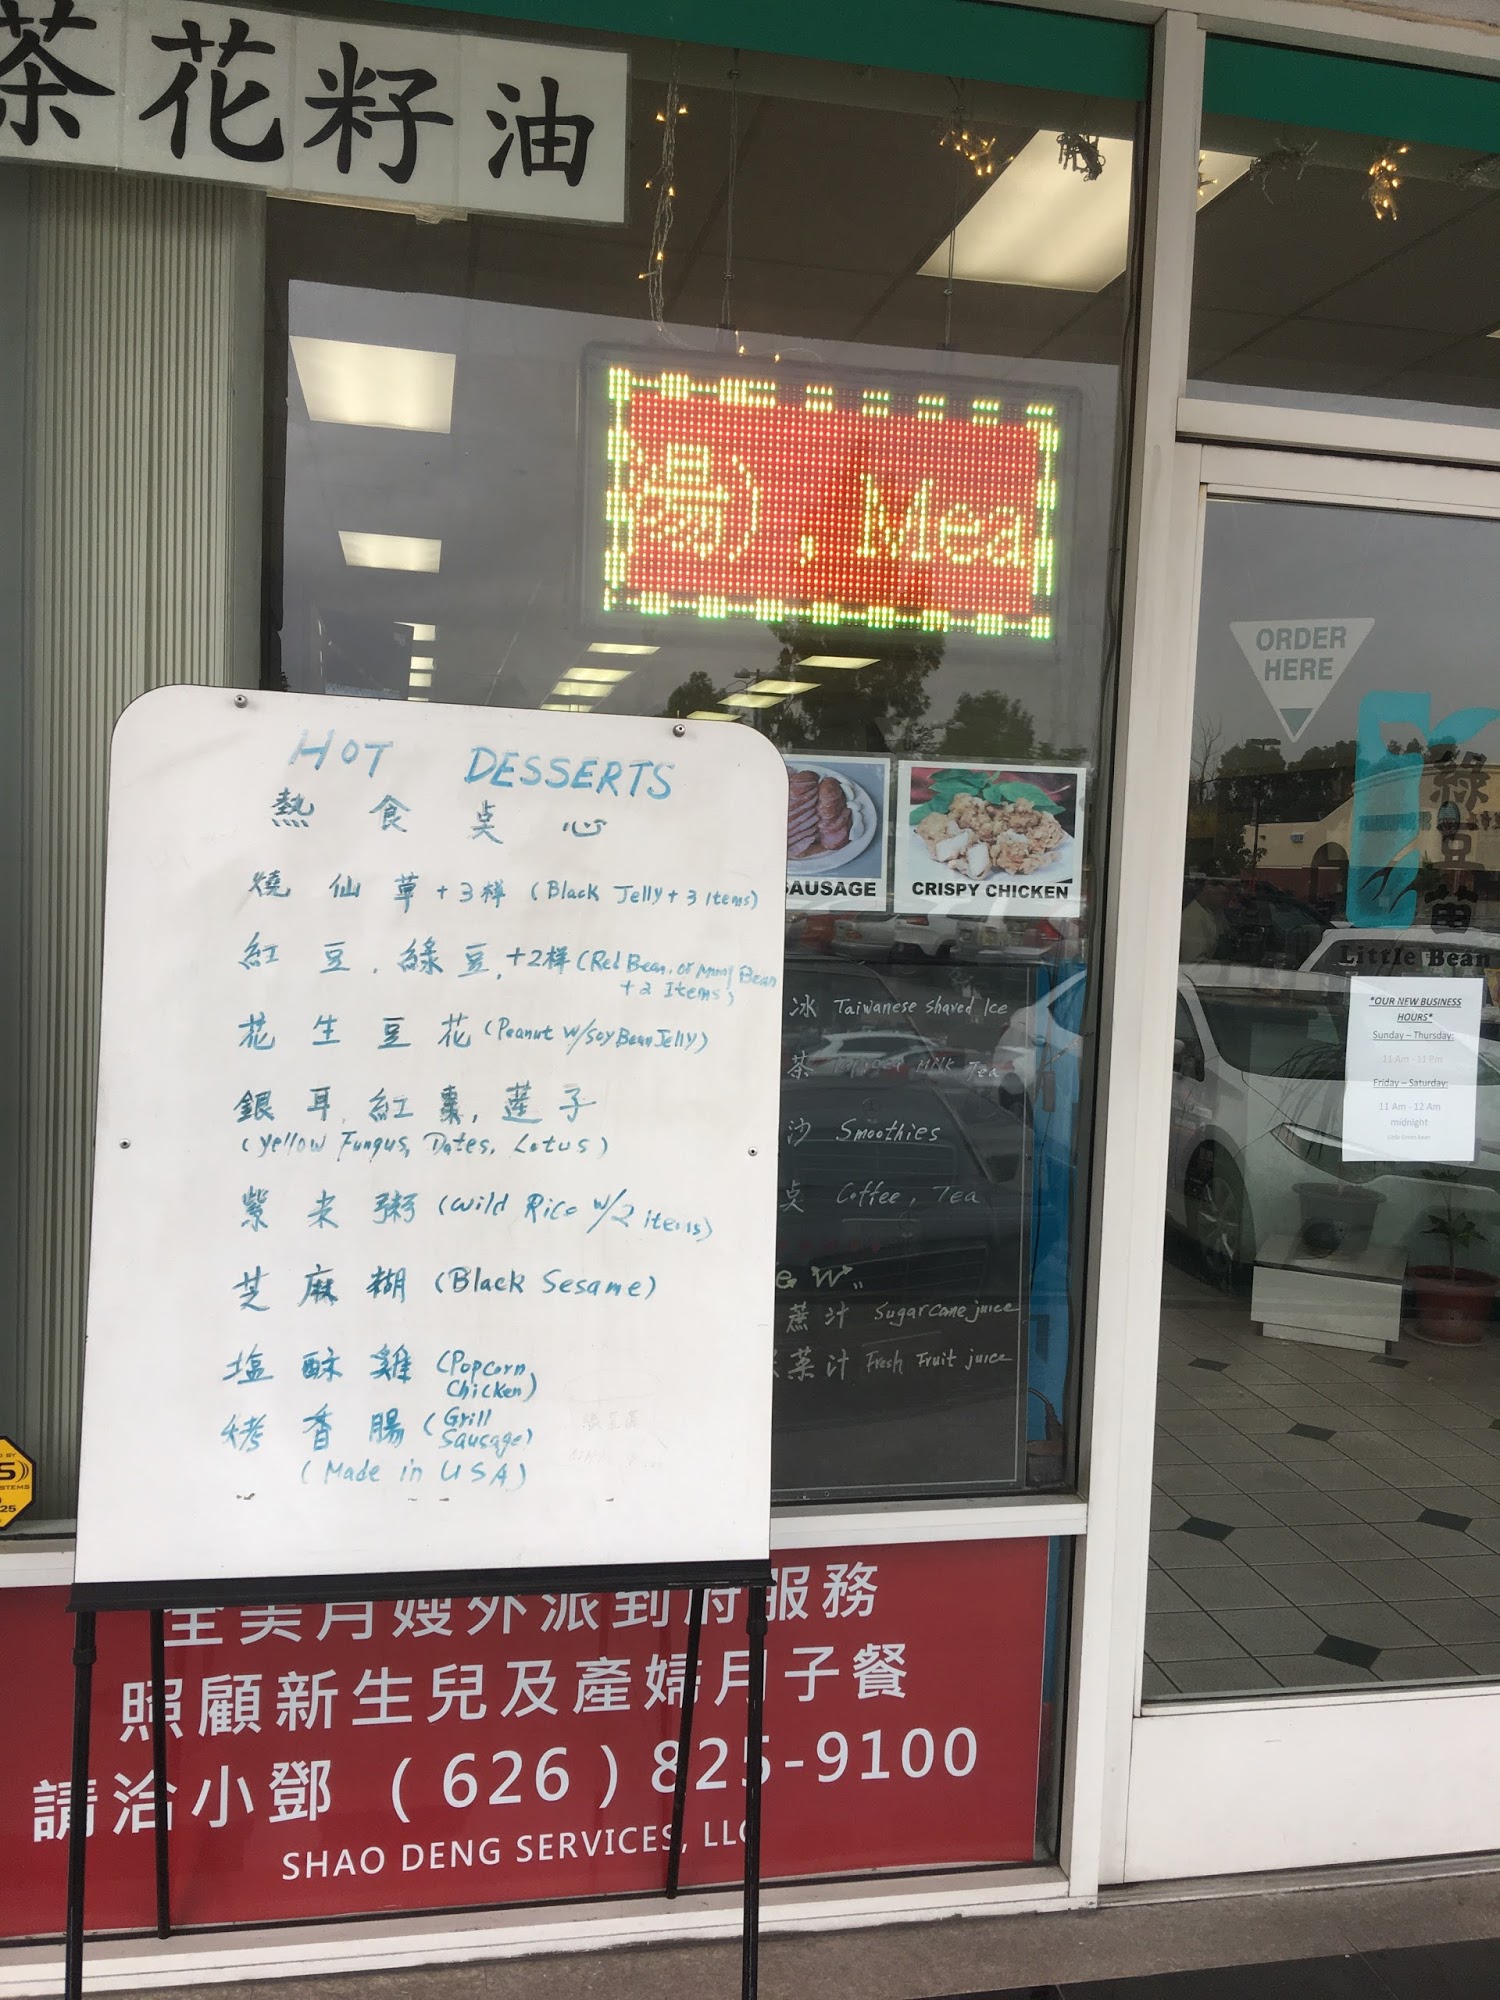 茶花籽油
湯), Mea
HOT DESSERTS
熱食点心
燒仙草+3样 (Black Jelly + 3 Items)
紅豆.綠豆.+2样(Red Bean, or Mung Bean
+2 Items)
花生豆花(Peanut w/Soy Bean Jelly)
銀耳.紅棗,莲子
(Yellow Fungus, Dates, Lotus)
紫米粥(Wild Rice w/2 items)
芝麻糊(Black Sesame)
塩酥雞(Popcorn
Chicken)
烤香腸(Grill
Sausage)
(Made in USA)
SAUSAGE
CRISPY CHICKEN
冰 Taiwanese Shaved Ice
茶 Tapioca Milk Tea
沙 Smoothies
点 Coffee, Tea
ew..
蔗汁 Sugarcane juice
菓汁 Fresh Fruit juice
ORDER
HERE
綠豆苗
Little Bean
*OUR NEW BUSINESS
HOURS*
Sunday – Thursday:
11 Am - 11 Pm
Friday – Saturday:
11 Am - 12 Am
midnight
Little Green Bean
全美月嫂外派到府服務
照顧新生兒及產婦月子餐
請洽小鄧 (626) 825-9100
SHAO DENG SERVICES, LLC